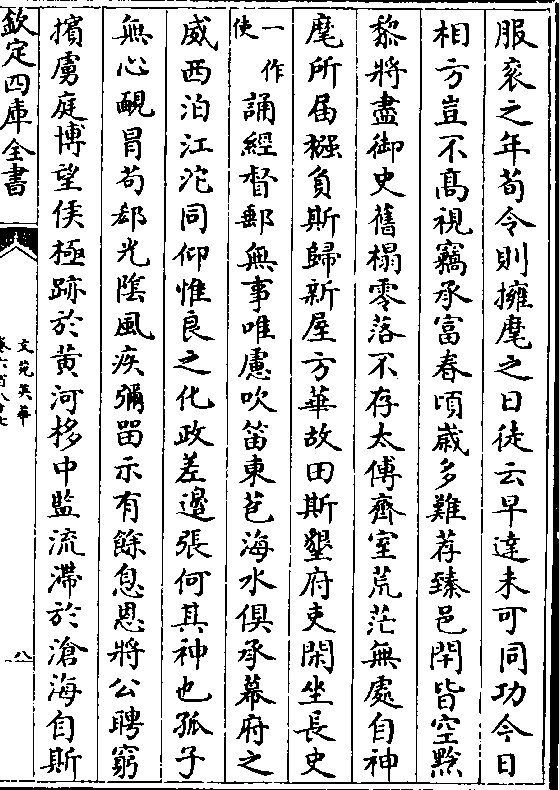 服衮之年荀令則擁麾之日徒云早達未可同功今日
相方豈不髙視竊承富春頃歲多難荐臻邑閈皆空黔
黎將盡御史舊榻零落不存太傅齊室荒茫無處自神
麾所届襁負斯歸新屋方華故田斯墾府吏閑坐長史
一作使誦經督郵無事唯慮吹笛東苞海水俱承幕府之
威西泊江沱同仰惟良之化政差邊張何其神也孤子
無心靦冒苟郄光隂風疾彌留示有餘息恩將公聘窮
擯虜庭博望侯極跡於黄河栘中監流滯於滄海自斯
欽定四庫全書
文苑英華
卷六百八十七
八